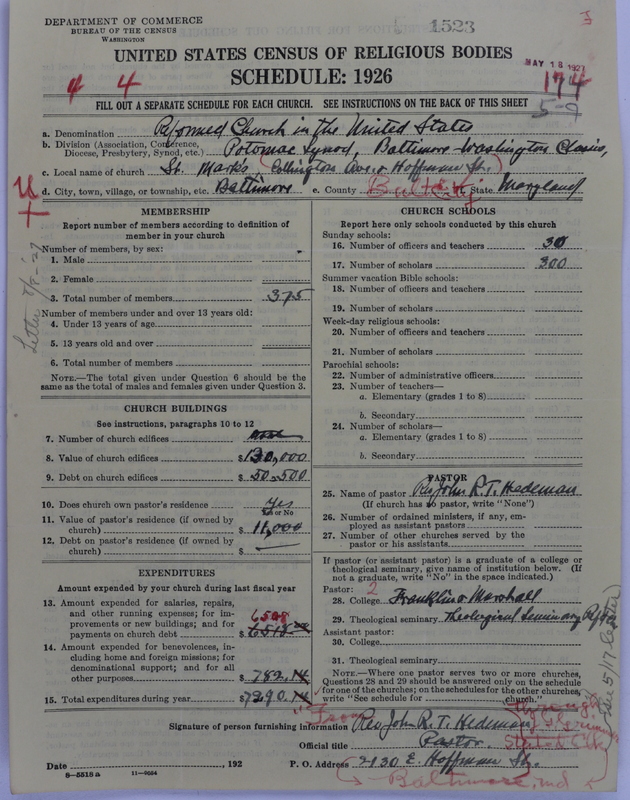 DEPARTMENT OF COMMERCE
BUREAU OF THE CENSUS
WASHINGTON
1523
UNITED STATES CENSUS OF RELIGIOUS BODIES
SCHEDULE: 1926
MAY 18 1927
174
5-9
4 4
FILL OUT A SEPARATE SCHEDULE FOR EACH CHURCH. SEE INSTRUCTIONS ON THE BACK OF THIS SHEET
a. Denomination Reformed Church in the United States
b. Division (Association, Conference, Diocese, Presbytery, Synod, etc.) Potomac Synod, Baltimore-Washington Classis,
c. Local name of church St. Mark's (Collington Ave. & Hoffman St.)
d. City, town, village, or township, etc. Baltimore e. County f. State Maryland
Letter 3/8-'27
MEMBERSHIP
Report number of members according to definition of
member in your church
Number of members, by sex:
1. Male
2. Female
3. Total number of members 375
Number of members under and over 13 years old:
4. Under 13 years of age
5. 13 years old and over
6. Total number of members
NOTE.—The total given under Question 6 should be the
same as the total of males and females given under Question 3.
CHURCH BUILDINGS
See instructions, paragraphs 10 to 12
7. Number of church edifices one
8. Value of church edifices $130,000
9. Debt on church edifices $50,500
10. Does church own pastor's residence Yes
Yes or No
11. Value of pastor's residence (if owned by
church) $11,000
12. Debt on pastor's residence (if owned by
church) $ —
EXPENDITURES
Amount expended by your church during last fiscal year
13. Amount expended for salaries, repairs,
and other running expenses; for im-
provements or new buildings; and for 6508
payments on church debt $6518.00
14. Amount expended for benevolences, in-
cluding home and foreign missions; for
denominational support; and for all
other purposes $782.14
15. Total expenditures during year $7290.14
CHURCH SCHOOLS
Report here only schools conducted by this church
Sunday schools:
16. Number of officers and teachers 30
17. Number of scholars 300
Summer vacation Bible schools:
18. Number of officers and teachers
19. Number of scholars
Week-day religious schools:
20. Number of officers and teachers
21. Number of scholars
Parochial schools:
22. Number of administrative officers
23. Number of teachers—
a. Elementary (grades 1 to 8)
b. Secondary
24. Number of scholars—
a. Elementary (grades 1 to 8)
b. Secondary
PASTOR
25. Name of pastor Rev John R. T. Hedeman
(If church has no pastor, write "None")
26. Number of ordained ministers, if any, em-
ployed as assistant pastors
27. Number of other churches served by the
pastor or his assistants
If pastor (or assistant pastor) is a graduate of a college or
theological seminary, give name of institution below. (If
not a graduate, write "No" in the space indicated.)
Pastor: 2
28. College Franklin & Marshall
29. Theological seminary Theological Seminary Ref.
Assistant pastor:
30. College
31. Theological seminary
NOTE.—Where one pastor serves two or more churches,
Questions 28 and 29 should be answered only on the schedule
for one of the churches; on the schedules for the other churches,
write "See schedule for church."
See 5/17 letter
"From through
Signature of person furnishing information Rev John R. T. Hedeman
Official title Pastor. Stated Clk
Date , 192 P. O. Address 2130 E. Hoffman St.
Baltimore, Md
8—5518 a 11—9034